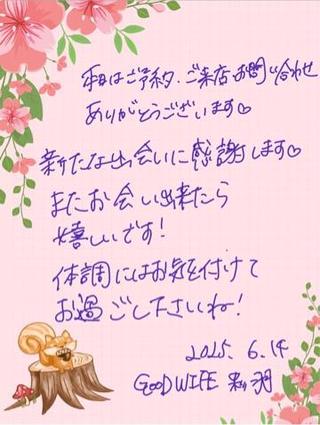 本日はご予約、ご来店、お問い合わせ
ありがとうございます♡
新たな出会いに感謝します♡
またお会い出来たら
嬉しいです!
体調にはお気を付けて
お過ごし下さいね!
2025. 6.14
GOOD WIFE